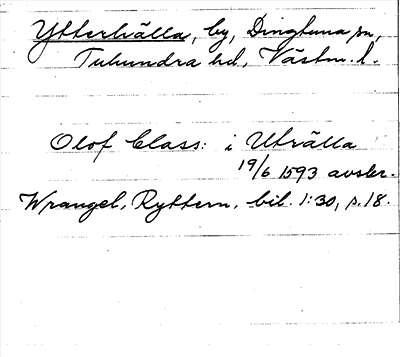 Ytterhälla, by, Dingtuna sn,
Tuhundra hd, Västm. l.
Olof Class: i Uträlla
19/6 1593 avskr.
Wrangel, Ryttern, bil. 1:30, p. 18.